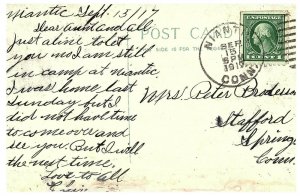 Niantic Sept. 13/17
Dear Aunt and all,
Just a line to let
you no I am still
in camp at Niantic,
I was home last
Sunday but I
did not have time
to come over and
see you. But I will
the next time.
Love to all
POST CARD
NIANTIC
SEP
15
6 PM
CONN.
Mrs Peter Brodersen
Stafford
Springs
Conn.